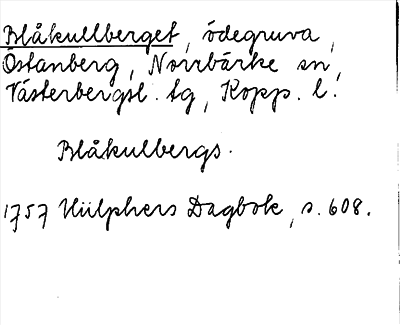 Blåkullberget, ödegruva,
Östanberg, Norrbärke sn,
Västerbergsl. tg, Kopp. l.
Blåkulbergs.
1757 Hülphers Dagbok, s. 608.